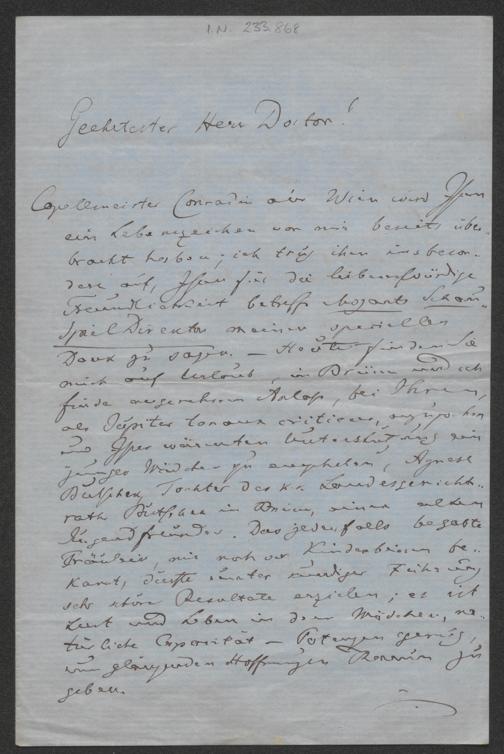 I.N. 233.868
Geehrtester Herr Doctor!
Capellmeister Conradin aus Wien wird Ihnen
ein Lebenszeichen von mir bereits über-
bracht haben; ich trug ihm insbeson-
dere auf, Ihnen für die liebenswürdige
Freundlichkeit betreffs Mozarts Schau-
spieldirektor meinen speciellen
Dank zu sagen. — Heute finden Sie
mich auf Urlaub, in Brünn und ich
finde angenehmen Anlass, bei Ihnen,
als Jupiter tonans criticus, anzupochen
und Ihrer wärmsten Unterstützung ein
junges Mädchen zu empfehlen, Agnes
Tochter des k.k. Landesgerichts-
rath in Brünn, eines alten
Jugendfreundes. Das jedenfalls begabte
Fräulein, mir noch aus Kinderbeinen be-
kannt, dürfte unter kundiger Führung
sehr schöne Resultate erzielen; es ist
Lust und Leben in dem Mädchen, na-
türliche Capacität — genug,
um glänzenden Hoffnungen Raum zu
geben.